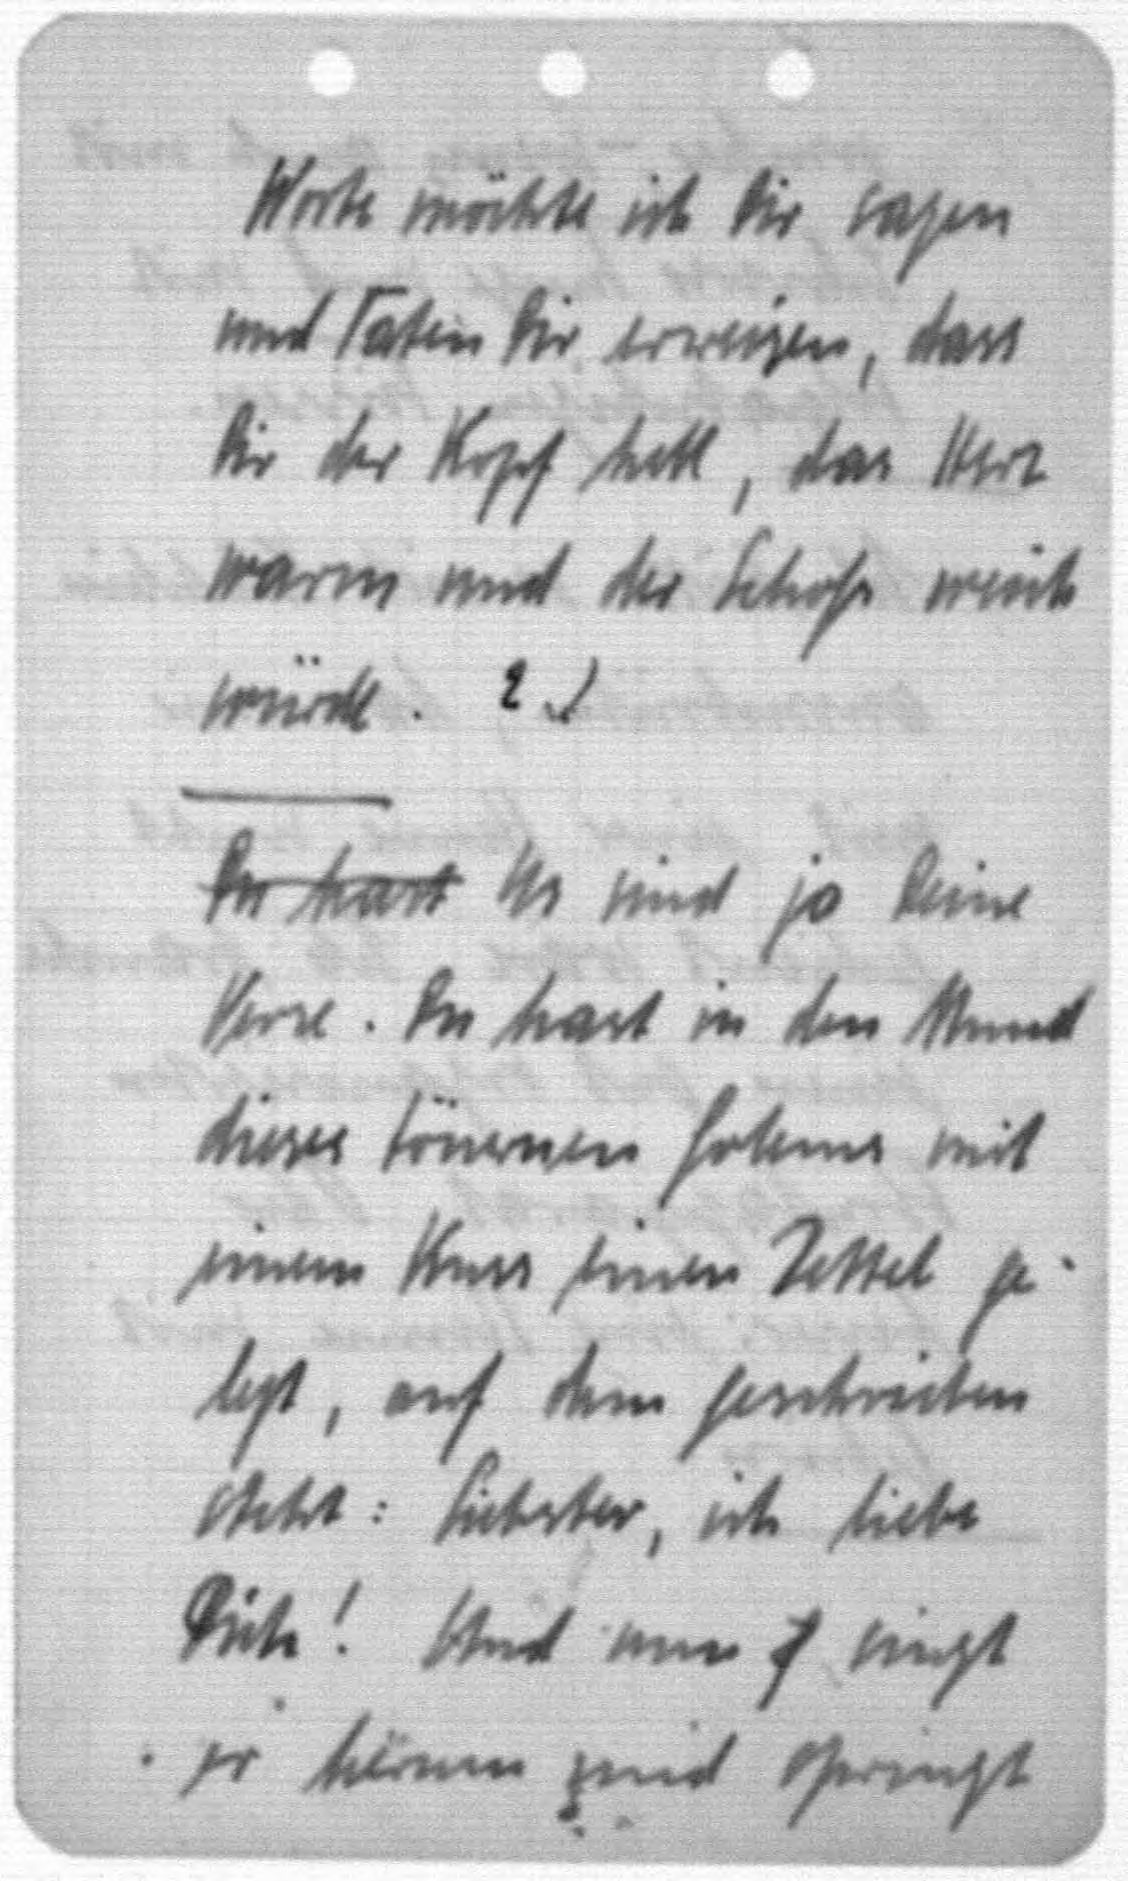 Worte möchte ich Dir sagen
und Taten Dir erweisen, dass
Dir der Kopf hell, das Herz
warm und der Schoß weich
würde. 2
Du hast Es sind ja Deine
Verse. Du hast in den Mund
dieses tönernen Golems mit
einem Kuss einen Zettel ge-
legt, auf dem geschrieben
steht: Liebster, ich liebe
Dich! Und nun singt
er und springt